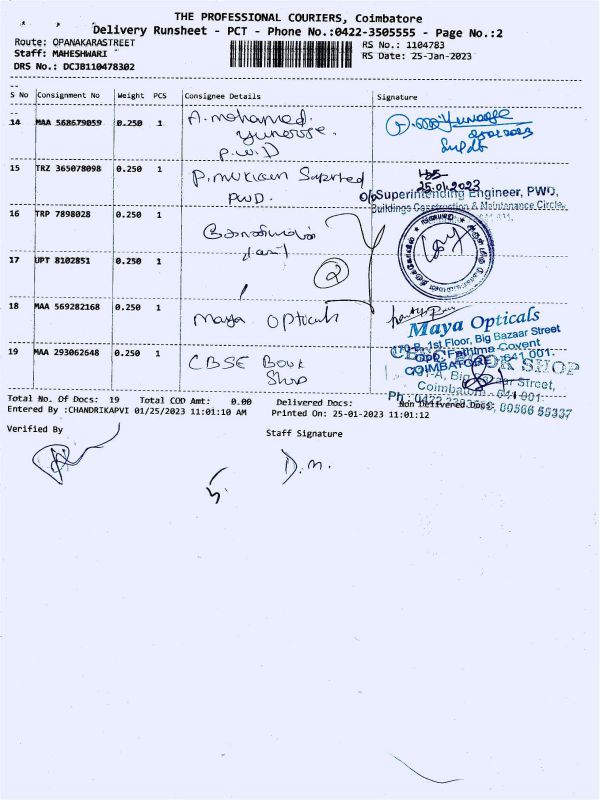 THE PROFESSIONAL COURIERS, Coimbatore
Delivery Runsheet - PCT - Phone No.:0422-3505555 - Page No.:2
Route: OPANAKARASTREET
RS No.: 1104783
Staff: MAHESHWARI
RS Date: 25-Jan-2023
DRS No.: DCJB110478302
S No Consignment No Weight PCS Consignee Details Signature
14 MAA 568679059 0.250 1 A.mohamed.
P.W.D
15 TRZ 365078098 0.250 1
PWD.
25.01.2023
O/o Superintending Engineer, PWD,
Buildings Construction & Maintenance Circle,
16 TRP 7898028 0.250 1
17 UPT 8102851 0.250 1
2
18 MAA 569282168 0.250 1 Maya Opticals
Maya Opticals
170-B, 1st Floor, Big Bazaar Street
Opp. Fathima Convent
COIMBATORE - 641 001.
19 MAA 293062648 0.250 1 CBSE Book
Shop
BOOK SHOP
Big Bazaar Street,
Coimbatore - 641 001.
Total No. Of Docs: 19 Total COD Amt: 0.00 Delivered Docs: Non Delivered Docs:
Entered By :CHANDRIKAPVI 01/25/2023 11:01:10 AM Printed On: 25-01-2023 11:01:12
Verified By
Staff Signature
D.M.